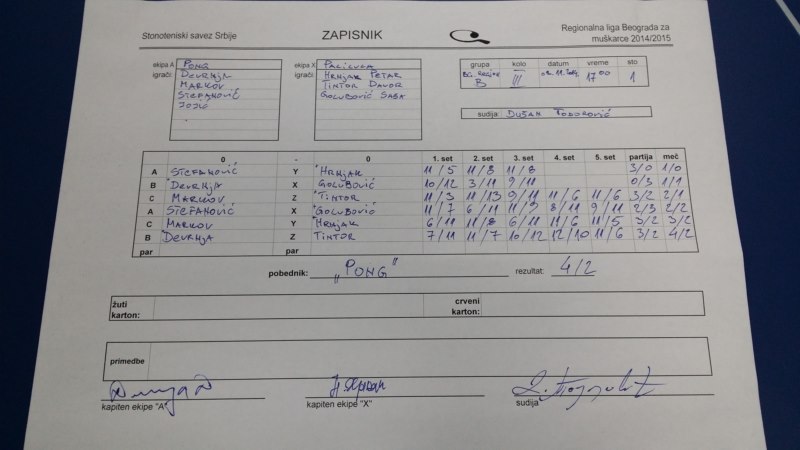 Stonoteniski savez Srbije
ZAPISNIK
Regionalna liga Beograda za
muškarce 2014/2015
ekipa A PONG
igrači: DEVRNJA
MARKOV
STEFANOVIĆ
JOJIĆ
ekipa X PALILULA
igrači: HRNJAK PETAR
TINTOR DAVOR
GOLUBOVIĆ SAŠA
grupa kolo datum vreme sto
B III 17 00 1
sudija: DUŠAN TODOROVIĆ
0 - 0 1. set 2. set 3. set 4. set 5. set partija meč
A STEFANOVIĆ Y HRNJAK 11/5 11/8 11/8 3/0 1/0
B DEVRNJA X GOLUBOVIĆ 10/12 3/11 9/11 0/3 1/1
C MARKOV Z TINTOR 11/3 11/13 9/11 11/6 11/6 3/2 2/1
A STEFANOVIĆ X GOLUBOVIĆ 11/7 6/11 11/9 8/11 9/11 2/3 2/2
C MARKOV Y HRNJAK 6/11 11/8 6/11 11/6 11/5 3/2 3/2
B DEVRNJA Z TINTOR 7/11 11/7 10/12 12/10 11/6 3/2 4/2
par par
pobednik: „PONG" rezultat: 4/2
žuti
karton:
crveni
karton:
primedbe
kapiten ekipe "A"
kapiten ekipe "X"
sudija